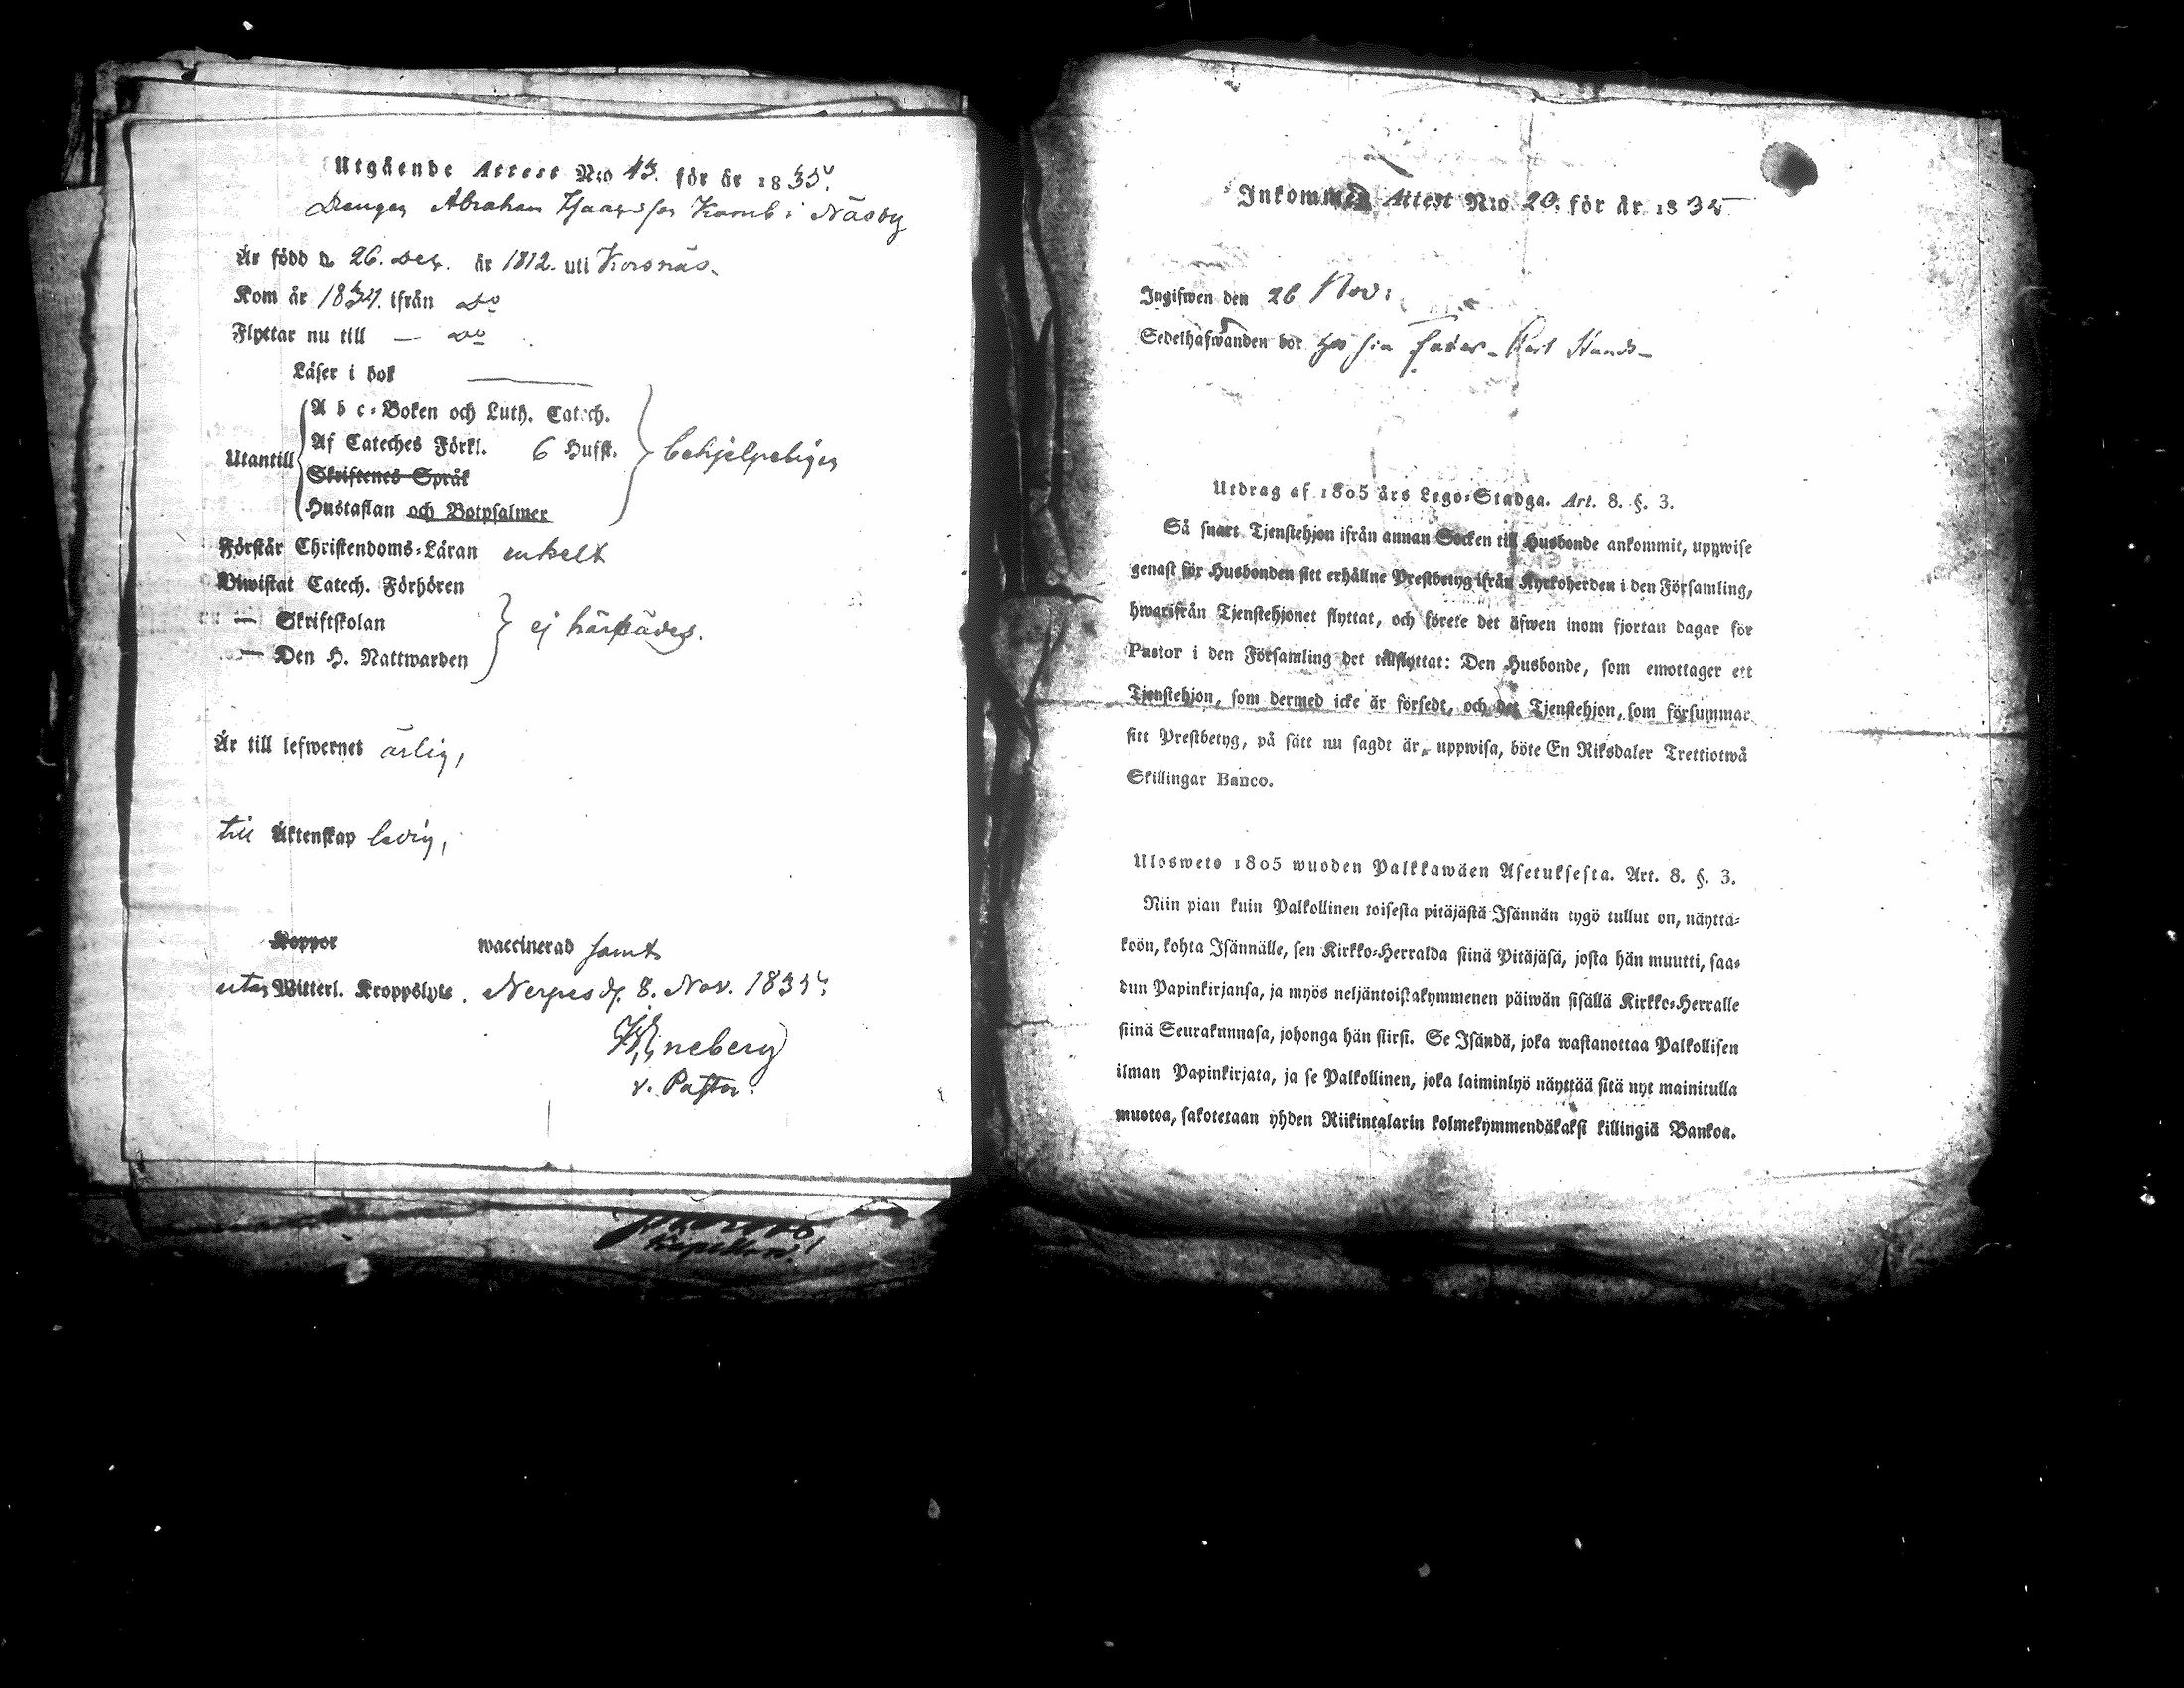 Utgående Attest N:o 43. för år 1835.
Drengen Abraham Isaacsson Kamb i Näsby
Är född d. 26. Dec. år 1812. uti Korsnäs.
Kom år 1834. ifrån Do
Flyttar nu till — Do
Läser i bok
A b c-Boken och Luth. Catech.
Af Cateches Förkl. 6 Hufst.
Utantill behjelpeligen
Skriftenes Språk
Hustaflan och Botpsalmer
Förstår Christendoms-Läran enkelt
Biwistat Catech. Förhören
— Skriftskolan
ej härstädes.
— Den H. Nattwarden
Är till lefwernet ärlig,
till Äktenskap ledig,
Koppor waccinerad samt
utan Witterl. Kroppslyte. Nerpes d. 8. Nov. 1835.
v. Pastor.
Kapellan
Inkommen Attest N:o 20. för år 1835
Ingifwen den 26 Nov:
Sedelhafwanden bor hos sin fader
Utdrag af 1805 års Lego-Stadga. Art. 8. §. 3.
Så snart Tjenstehjon ifrån annan Socken till Husbonde ankommit, uppwise
genast för Husbonden sitt erhållne Prestbetyg ifrån Kyrkoherden i den Församling,
hwarifrån Tjenstehjonet flyttat, och förete det äfwen inom fjortan dagar för
Pastor i den Församling det tillflyttat: Den Husbonde, som emottager ett
Tjenstehjon, som dermed icke är försedt, och det Tjenstehjon, som försummar
sitt Prestbetyg, på sätt nu sagdt är, uppwisa, böte En Riksdaler Trettiotwå
Skillingar Banco.
Ulosweto 1805 wuoden Palkkawäen Asetuksesta. Art. 8. §. 3.
Niin pian kuin Palkollinen toisesta pitäjästä Isännän tygö tullut on, näyttä-
köön, kohta Isännälle, sen Kirkko-Herralda siinä Pitäjäsä, josta hän muutti, saa-
dun Papinkirjansa, ja myös neljäntoistakymmenen päiwän sisällä Kirkko-Herralle
siinä Seurakunnasa, johonga hän siirsi. Se Isändä, joka wastanottaa Palkollisen
ilman Papinkirjata, ja se Palkollinen, joka laiminlyö näyttää sitä nyt mainitulla
muotoa, sakotetaan yhden Riikintalarin kolmekymmendäkaksi killingiä Bankoa.